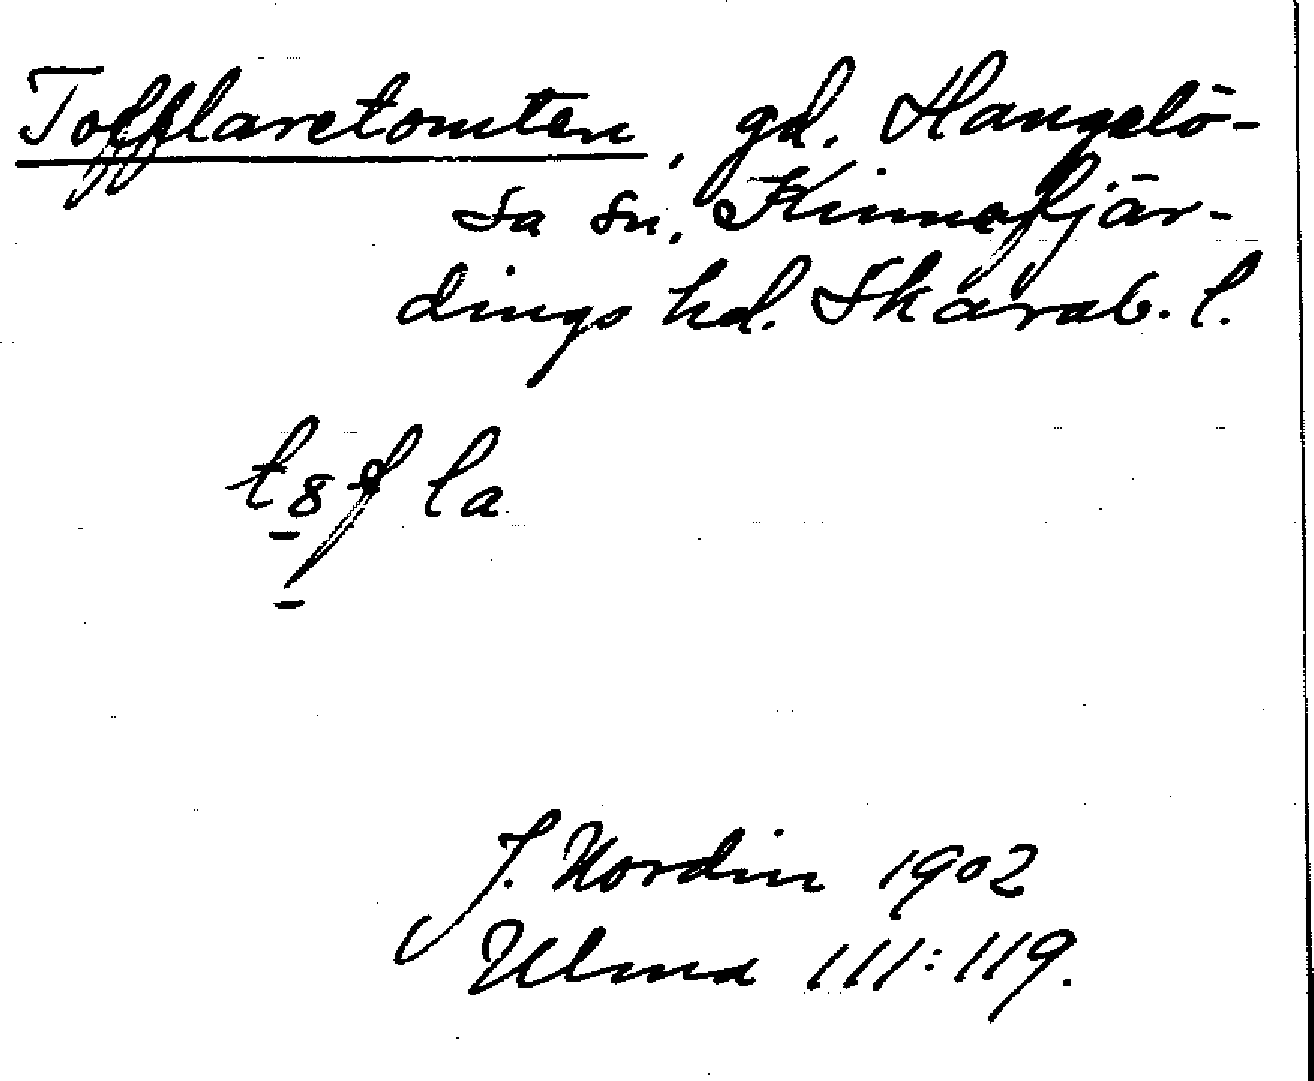 Tofflaretomten, gd. Hangelö-
sa sn, Kinnefjär-
dings hd. Skarab. l.
t8f la
J. Nordin 1902
Ulma 111:119.